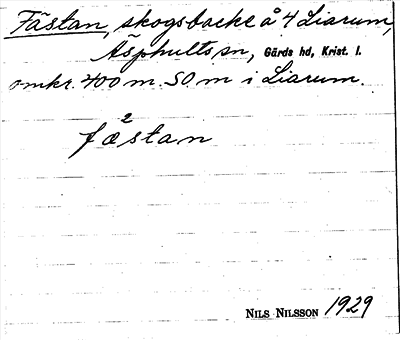 Fästan, skogsbacke å 4 Liarum,
Äsphults sn, Gärds hd, Krist. l.
omkr. 400 m. SO m i Liarum.
2
fæstan
NILS NILSSON 1929